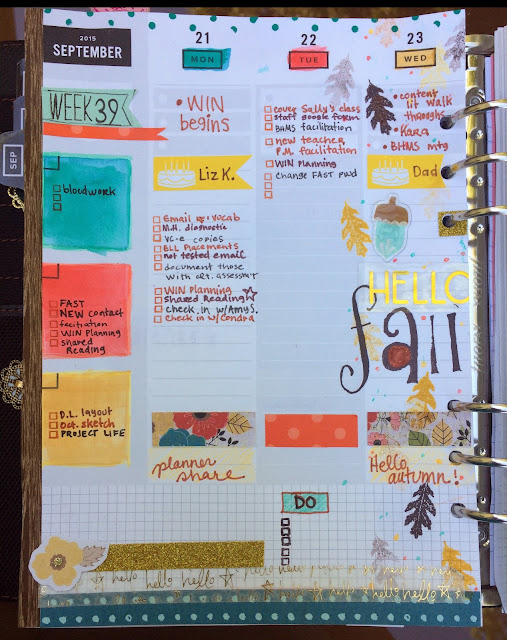 2015
SEPTEMBER
21
MON
22
TUE
23
WED
SEP
WEEK 39
bloodwork
FAST
NEW contact
faciliation
WIN Planning
shared
Reading
D.L. layout
Oct. sketch
PROJECT LIFE
• WIN
begins
Liz K.
Email re: vocab
M.H. diagnostic
VC-E copies
ELL Placements
not tested email
document those
with alt. assessmt
WIN Planning
shared Reading
check in w/Amy S.
check in w/Condra
planner
share
cover Sally's class
staff google form
BHMS facilitation
new teacher
P.M. facilitation
WIN Planning
change FAST pwd
• content
lit walk
throughs
• Kara
• BHMS mtg
Dad
HELLO
fall
Hello
autumn!
DO
hello hello hello
hello hello